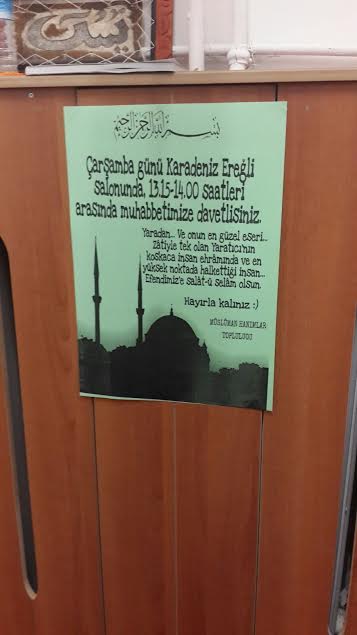 بسم الله الرحمن الرحيم
Çarşamba günü Karadeniz Ereğli
salonunda, 13.15-14.00 saatleri
arasında muhabbetimize davetlisiniz.
Yaradan... Ve onun en güzel eseri...
zâtiyle tek olan Yaratıcı'nın
koskaca insan ehrâmında ve en
yüksek noktada halkettiği insan...
Efendimiz'e salât-ü selâm olsun.
Hayırla kalınız :)
MÜSLÜMAN HANIMLAR
TOPLULUGU